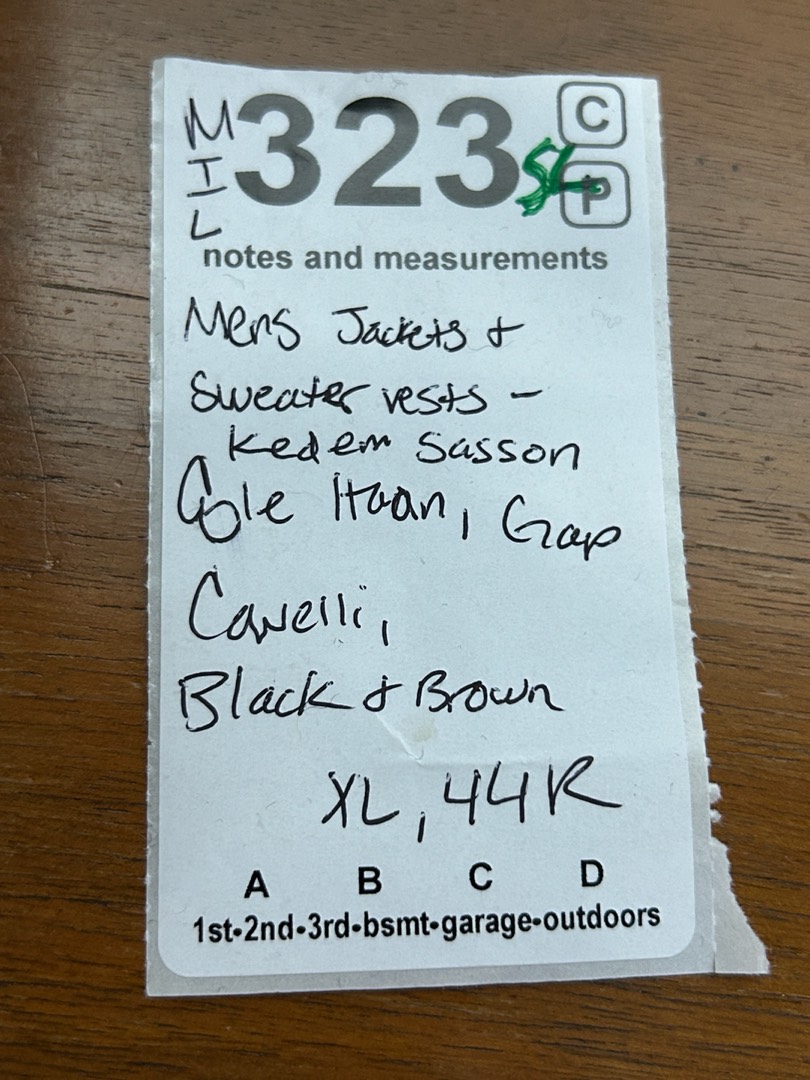 MIL 323 SL C
P
notes and measurements
Mens Jackets &
Sweater vests -
Kedem Sasson
Cole Haan, Gap
Cavelli,
Black & Brown
XL, 44R
A B C D
1st•2nd•3rd•bsmt•garage•outdoors